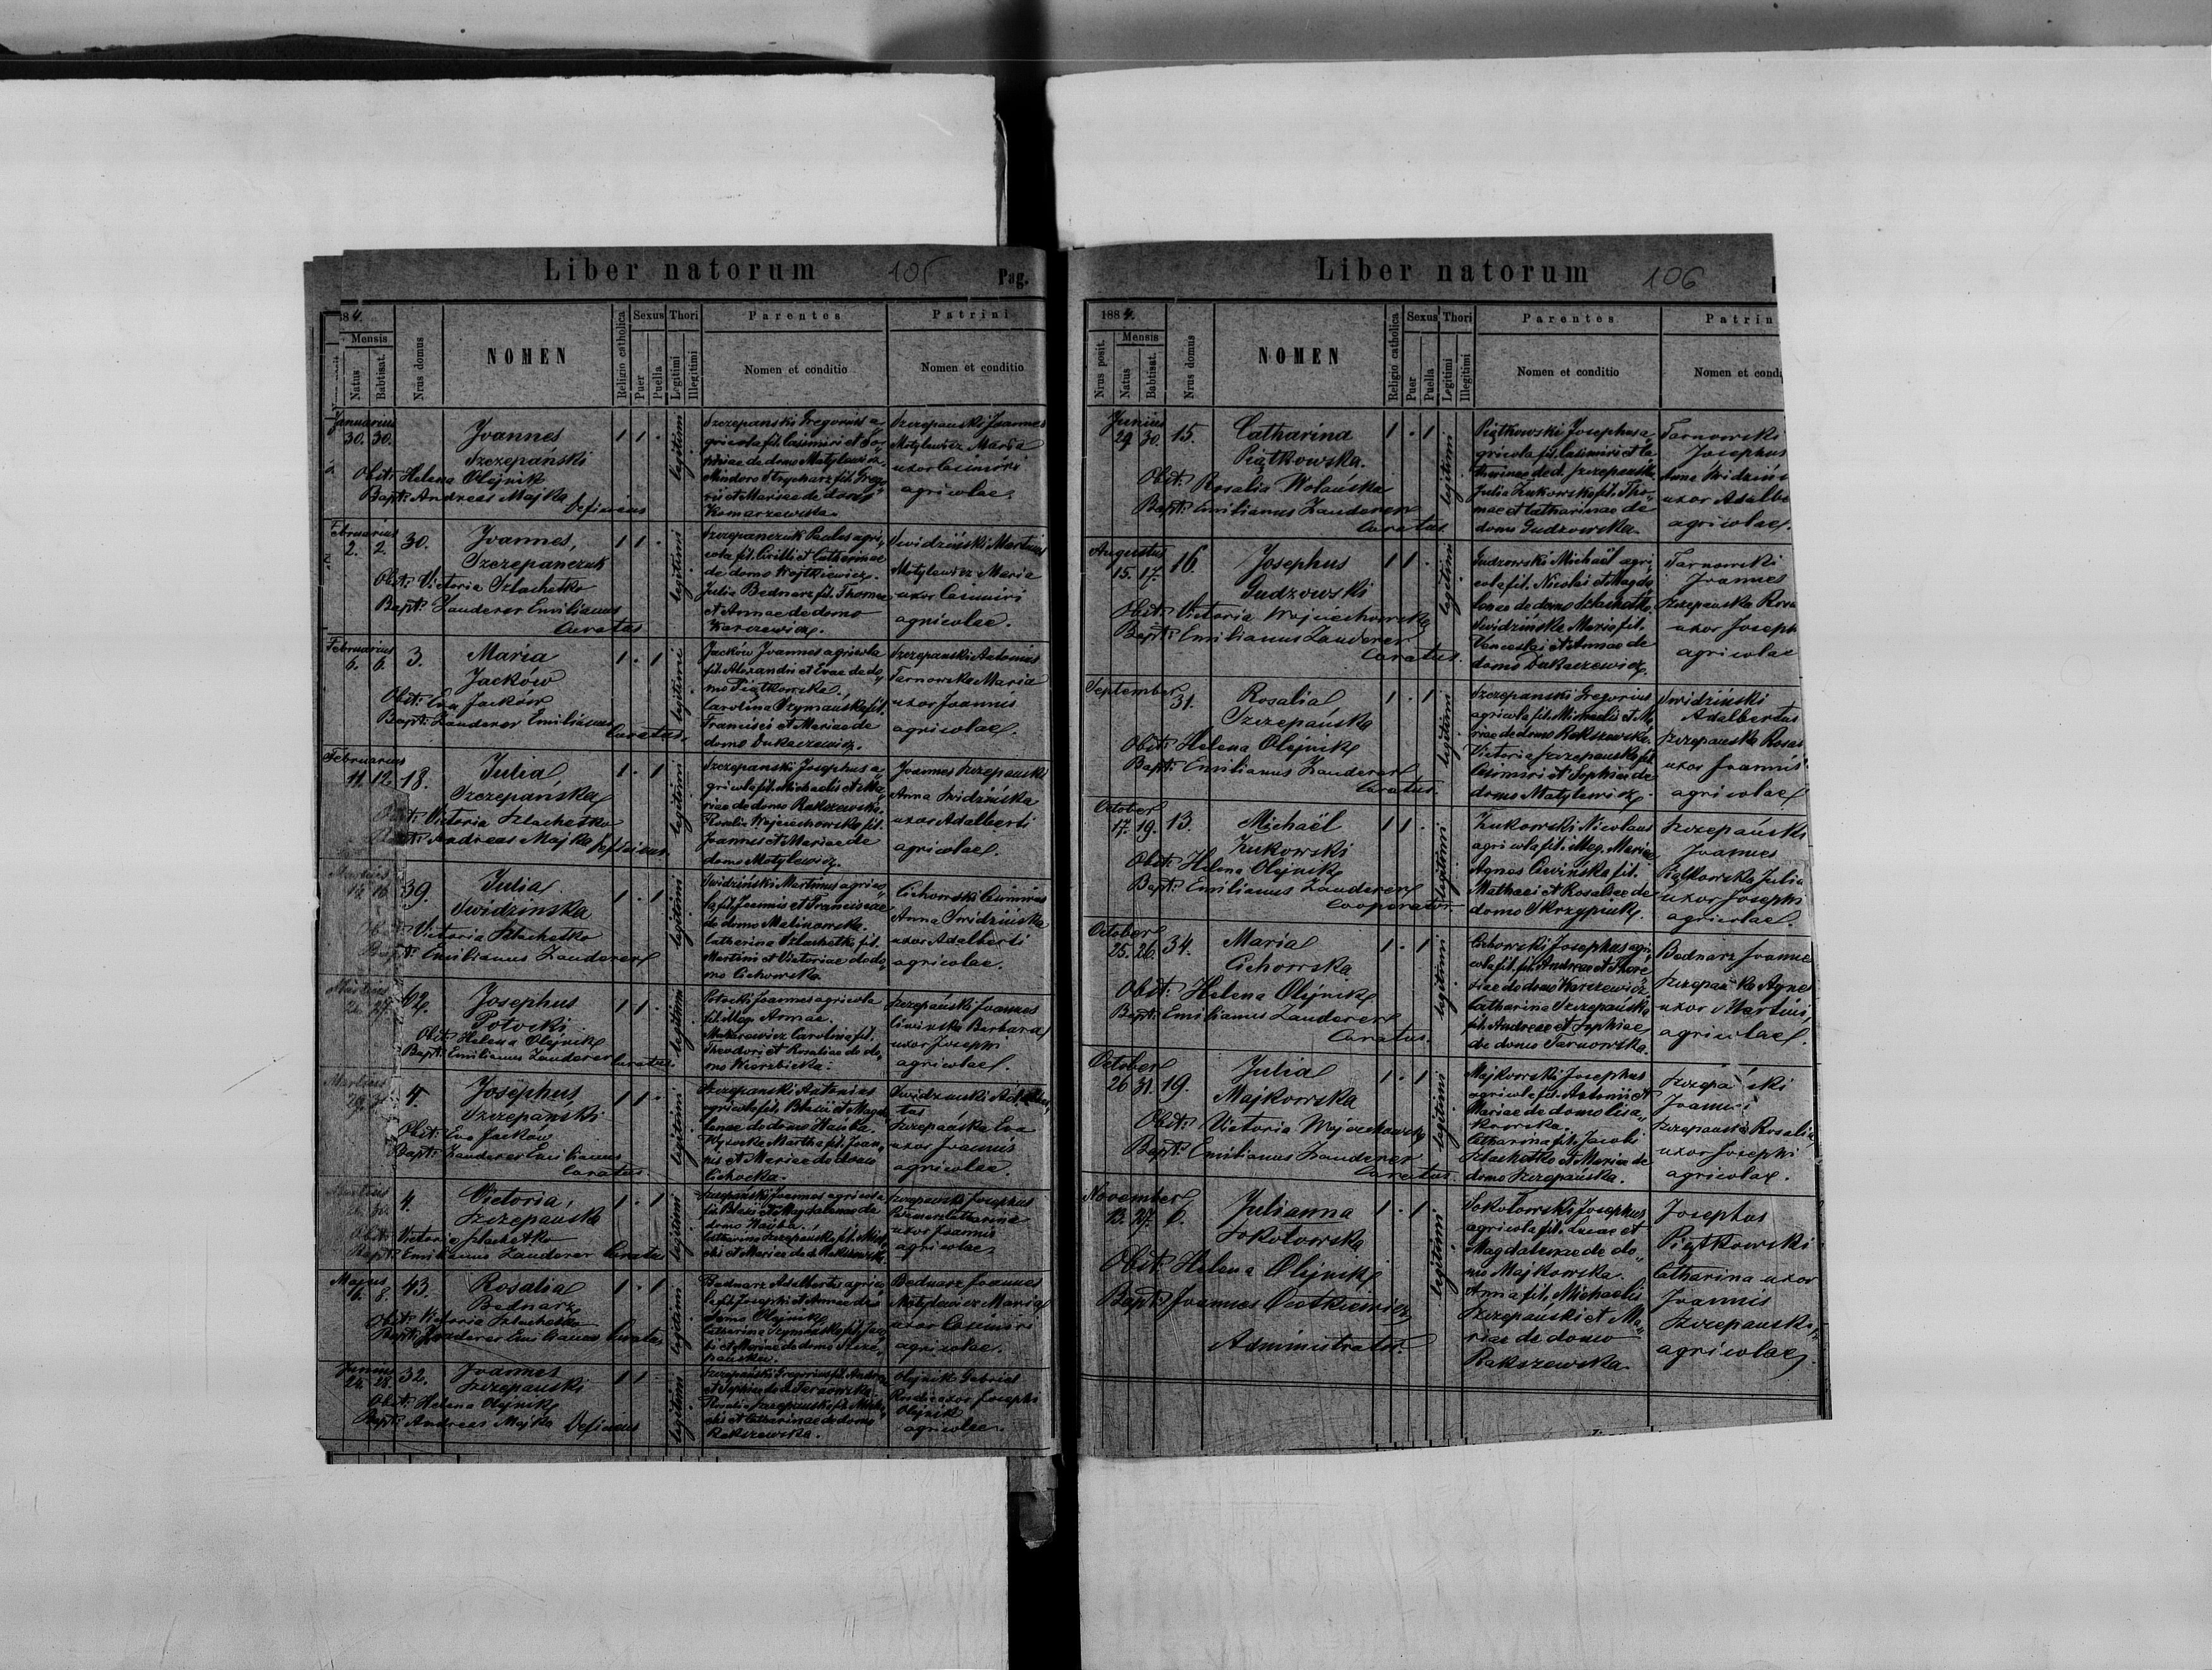 Liber natorum 105 Pag.
1884.
Mensis
Natus
Babtisat.
Nrus domus
NOMEN
Religio catholica
Sexus
Puer
Puella
Thori
Legitimi
Illegitimi
Parentes
Nomen et conditio
Patrini
Nomen et conditio
Januarius
30. 30.
Joannes
Szczepański
Obst: Helena Olejnik
Bapt: Andreas Majka Deficiens
1 1 .
legitimi
Szczepanski Gregorius a„
gricola fil. Casimiri et So„
phiae de domo Matylewicz.
Komarzewska.
Szczepański Joannes
Motylewicz Maria
uxor Casimiri
agricolae.
Februarius
2. 2. 30.
Joannes,
Szczepanczuk
Obst: Victoria Szlachetko
Bapt: Zauderer Emilianus
Curatus
1 1 .
legitimi
Szczepanczuk Paulus agri„
cola fil. Cirilli et Catharinae
de domo Wojtkiewicz.
Julia Bednarz fil. Thomae
et Annae de domo
Karczewicz.
Swidziński Martinus
Motylewicz Maria
uxor Casimiri
agricolae.
Februarius
6. 6. 3.
Maria
Jacków
Obst: Eva Jacków
Bapt: Zauderer Emilianus
Curatus.
1 . 1
legitimi
Jackow Joannes agricola
fil. Alexandri et Evae de do„
mo Piątkowska.
Carolina Szymańska fil.
Francisci et Mariae de
domo Dukaczewicz.
Szczepanski Antonius
Tarnowska Maria
uxor Joannis
agricolae.
Februarius
11. 12. 18.
Julia
Szczepańska
Obst: Victoria Szlachetko
Bapt: Andreas Majka Deficiens
1 . 1
legitimi
Szczepanski Josephus a„
gricola fil. Michaelis et Ma„
riae de domo Rakszewska.
Rosalia Wojciechowska fil.
Joannis et Mariae de
domo Motylewicz.
Joannes Szczepanski
Anna Swidzińska
uxor Adalberti
agricolae.
Martius
39.
Julia
Swidzinska
Obst: Victoria Szlachetko
Bapt: Emilianus Zauderer
1 . 1
legitimi
Swidziński Martinus agrico„
la fil. Joannis et Franciscae
de domo Malinowska.
Catharina Szlachetko fil.
Martini et Victoriae de do„
mo Cichowska.
Cichowski Casimirus
Anna Swidzińska
uxor Adalberti
agricolae.
Martius
62.
Josephus
Potocki
Obst: Helena Olejnik
Bapt: Emilianus Zauderer Curatus.
1 1 .
legitimi
Potocki Joannes agricola
fil. Mag. Annae.
Carolina fil.
Theodori et Rosaliae de do„
mo Wierzbicka.
Szczepański Joannes
Ciwińska Barbara
uxor Josephi
agricolae.
Martius
4.
Josephus
Szczepański
Obst: Eva Jacków
Bapt: Zauderer Emilianus
Curatus.
1 1 .
legitimi
Szczepanski Antonius
agricola fil. Blasii et Magda„
lenae de domo Hauba.
Wysocka Martha fil. Joan„
nis et Mariae de domo
Cichocka.
Swidzinski Adalber„
tus
Szczepańska Eva
uxor Joannis
agricolae.
Martius
4.
Victoria,
Szczepańska
Obst: Victoria Szlachetko
Bapt: Emilianus Zauderer Curatus
1 . 1
legitimi
Szczepański Joannes agricola
fil. Blasii et Magdalenae de
domo Hauba.
Catharina Szczepańska fil. Mich„
elis et Mariae de d. Rakszewska.
Szczepanski Josephus
Bednarz Catharina
uxor Joannis
agricolae
Majus
6. 8. 43.
Rosalia
Bednarz
Obst: Victoria Szlachetko
Bapt: Zauderer Emilianus Curatus
1 . 1
legitimi
Bednarz Adalbertus agrico„
la fil. Josephi et Annae de
domo Olejnik
Catharina Szymańska fil. Jaco„
bi et Mariae de domo Szcze„
pańska.
Bednarz Joannes
Motylewicz Maria
uxor Casimiri
agricolae.
Junius
24. 28. 32.
Joannes
Szczepanski
Obst: Helena Olejnik
Bapt: Andreas Majka Deficiens
1 1
legitimi
Szczepanski Gregorius fil. Andreae
et Sophiae de d. Tarnowska.
Rosalia Szczepańska fil. Micha„
elis et Catharinae de domo
Rakszewska.
Olejnik Gabriel
Rosalia uxor Josephi
Olejnik
agricolae.
Liber natorum 106
1884.
Nrus posit.
Mensis
Natus
Babtisat.
Nrus domus
NOMEN
Religio catholica
Sexus
Puer
Puella
Thori
Legitimi
Illegitimi
Parentes
Nomen et conditio
Patrin
Nomen et condi
Junius
29. 30. 15.
Catharina
Piątkowska.
Obst: Rosalia Wolańska
Bapt: Emilianus Zauderer
Curatus.
1 . 1
legitimi
Piątkowski Josephus a„
gricola fil. Casimiri et Ca„
tharinae de d. Szczepańska.
Julia Żukowska fil. Tho„
mae et Catharinae de
domo Gudzowska.
Tarnowski
Josephus
Anna Swidzińs
uxor Adalbe
agricolae.
Augustus
15. 17. 16
Josephus
Gudzowski
Obst: Victoria Wojciechowska
Bapt: Emilianus Zauderer
Curatus.
1 1 .
legitimi
Gudzowski Michaël agri„
cola fil. Nicolai et Magda„
lenae de domo Szlachetko.
Swidzińska Maria fil.
Venceslai et Annae de
domo Dukaczewicz.
Tarnowski
Joannes
Szczepanska Rosa
uxor Joseph
agricolae
September
31.
Rosalia
Szczepańska
Obst: Helena Olejnik
Bapt: Emilianus Zauderer
Curatus.
1 . 1
legitimi
Szczepanski Gregorius
agricola fil. Michaelis et Ma„
riae de domo Rakszewska.
Victoria Szczepanska fil.
Casimiri et Sophiae de
domo Matylewicz.
Swidziński
Adalbertus
Szczepanska Rosa
uxor Joannis
agricolae
October
17. 19. 13.
Michaël
Żukowski
Obst: Helena Olejnik
Bapt: Emilianus Zauderer
Cooperator.
1 1 .
legitimi
Żukowski Nicolaus
agricola fil. Mag. Mariae
Agnes Ciwińska fil.
Mathaei et Rosaliae de
domo Skrzypnik.
Szczepański
Joannes
Piątkowska Julia
uxor Josephi
agricolae.
October
25. 26. 34.
Maria
Cichowska
Obst: Helena Olejnik
Bapt: Emilianus Zauderer
Curatus.
1 . 1
legitimi
Cichowski Josephus agri„
cola fil. fil. Andreae et There„
siae de domo Karczewicz.
Catharina Szczepańska
fil. Andreae et Sophiae
de domo Tarnowska.
Bednarz Joanne
Szczepańska Agnes
uxor Martini,
agricolae.
October
26 31. 19.
Julia
Majkowska
Obst: Victoria Wojciechowska
Bapt: Emilianus Zauderer
Curatus.
1 . 1
legitimi
Majkowski Josephus
agricola fil. Antonii et
Mariae de domo Lisa„
kowska.
Catharina fil. Jacobi
Szlachetko et Mariae de
domo Szczepańska.
Szczepański
Joannes
Szczepańska Rosalia
uxor Josephi
agricolae.
November
13. 27. 6.
Julianna
Sokołowska
Obst: Helena Olejnik
Bapt: Joannes
Administrator.
1 . 1
legitimi
Sokołowski Josephus
agricola fil. Lucae et
Magdalenae de do„
mo Majkowska.
Anna fil. Michaelis
Szczepański et Ma„
riae de domo
Rakszewska.
Josephus
Piątkowski
Catharina uxor
Joannis
Szczepanski
agricolae